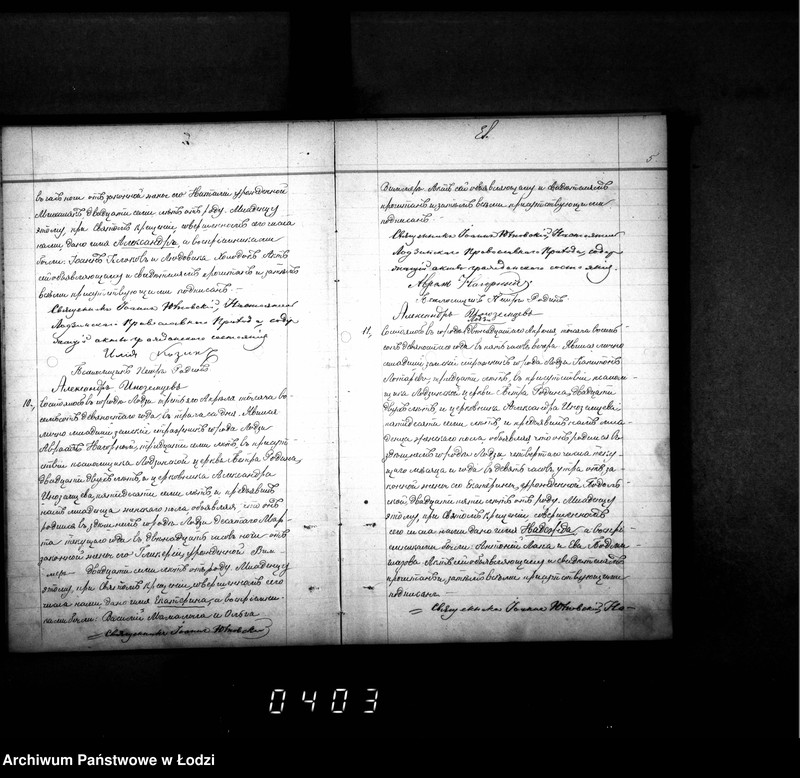 въ часъ ночи отъ законной жены его Наталіи урожденной
двадцати семи лѣтъ отъ роду. Младенцу
этому, при святомъ крещеніи, совершенномъ сего числа
нами, дано имя Александръ, а воспріемниками
были: и Людовика Актъ
сей объявляющему и свидѣтелямъ прочитанъ и затѣмъ
всѣми присутствующими подписанъ.
Священникъ Іоаннъ Настоятель
Лодзинскаго Православнаго Прихода, содер-
жащій акты гражданскаго состоянія
Илія
Псаломщикъ Петръ Родинъ
Александръ Иноземцевъ
10., Состоялось въ городѣ Лодзи третьяго Апрѣля тысяча во-
семьсотъ девяностаго года, въ три часа дня. Явился
лично младшій земскій стражникъ города Лодзи
Авраамъ Нагорный, тридцати семи лѣтъ, въ присут-
ствіи псаломщика Лодзинской церкви Петра Родина,
двадцати двухъ лѣтъ, и церковника Александра
Иноземцева, пятидесяти семи лѣтъ, и предъявилъ
намъ младенца женскаго пола, объявляя, что онъ
родился въ здѣшнемъ городѣ Лодзи десятаго Мар-
та текущаго года въ двѣнадцать часовъ ночи отъ
законной жены его Гликеріи урожденной
двадцати семи лѣтъ отъ роду. Младенцу
этому, при святомъ крещеніи, совершенномъ сего
числа нами, дано имя Екатерина, а воспріемни-
ками были: Василій и Ольга
Священникъ Іоаннъ
5
Актъ сей объявляющему и свидѣтелямъ
прочитанъ и затѣмъ всѣми присутствующими
подписанъ.
Священникъ Іоаннъ Настоятель
Лодзинскаго Православнаго Прихода, содер-
жащій акты гражданскаго состоянія.
Нагорный
Псаломщикъ Петръ Родинъ
Александръ Иноземцевъ
11., Состоялось въ городѣ Лодзи Апрѣля, тысяча восемь-
сотъ девяностаго года, въ пять часовъ вечера. Явился лично
младшій земскій стражникъ города Лодзи
тридцати лѣтъ, въ присутствіи псалом-
щика Лодзинской церкви Петра Родина, двадцати
двухъ лѣтъ, и церковника Александра Иноземцева,
пятидесяти семи лѣтъ, и предъявилъ намъ мла-
денца женскаго пола, объявляя что онъ родился въ
здѣшнемъ городѣ Лодзи четвертаго числа теку-
щаго мѣсяца и года въ девять часовъ утра отъ за-
конной жены его Екатерины, урожденной
двадцати пяти лѣтъ отъ роду. Младенцу
этому, при святомъ крещеніи совершенномъ
сего числа нами дано имя Надежда, а воспрі-
емниками были: Антоній и Ева
Актъ сей объявляющему и свидѣтелямъ
прочитанъ, затѣмъ всѣми присутствующими
подписанъ.
Священникъ Іоаннъ На-
0403
Archiwum Państwowe w Łodzi